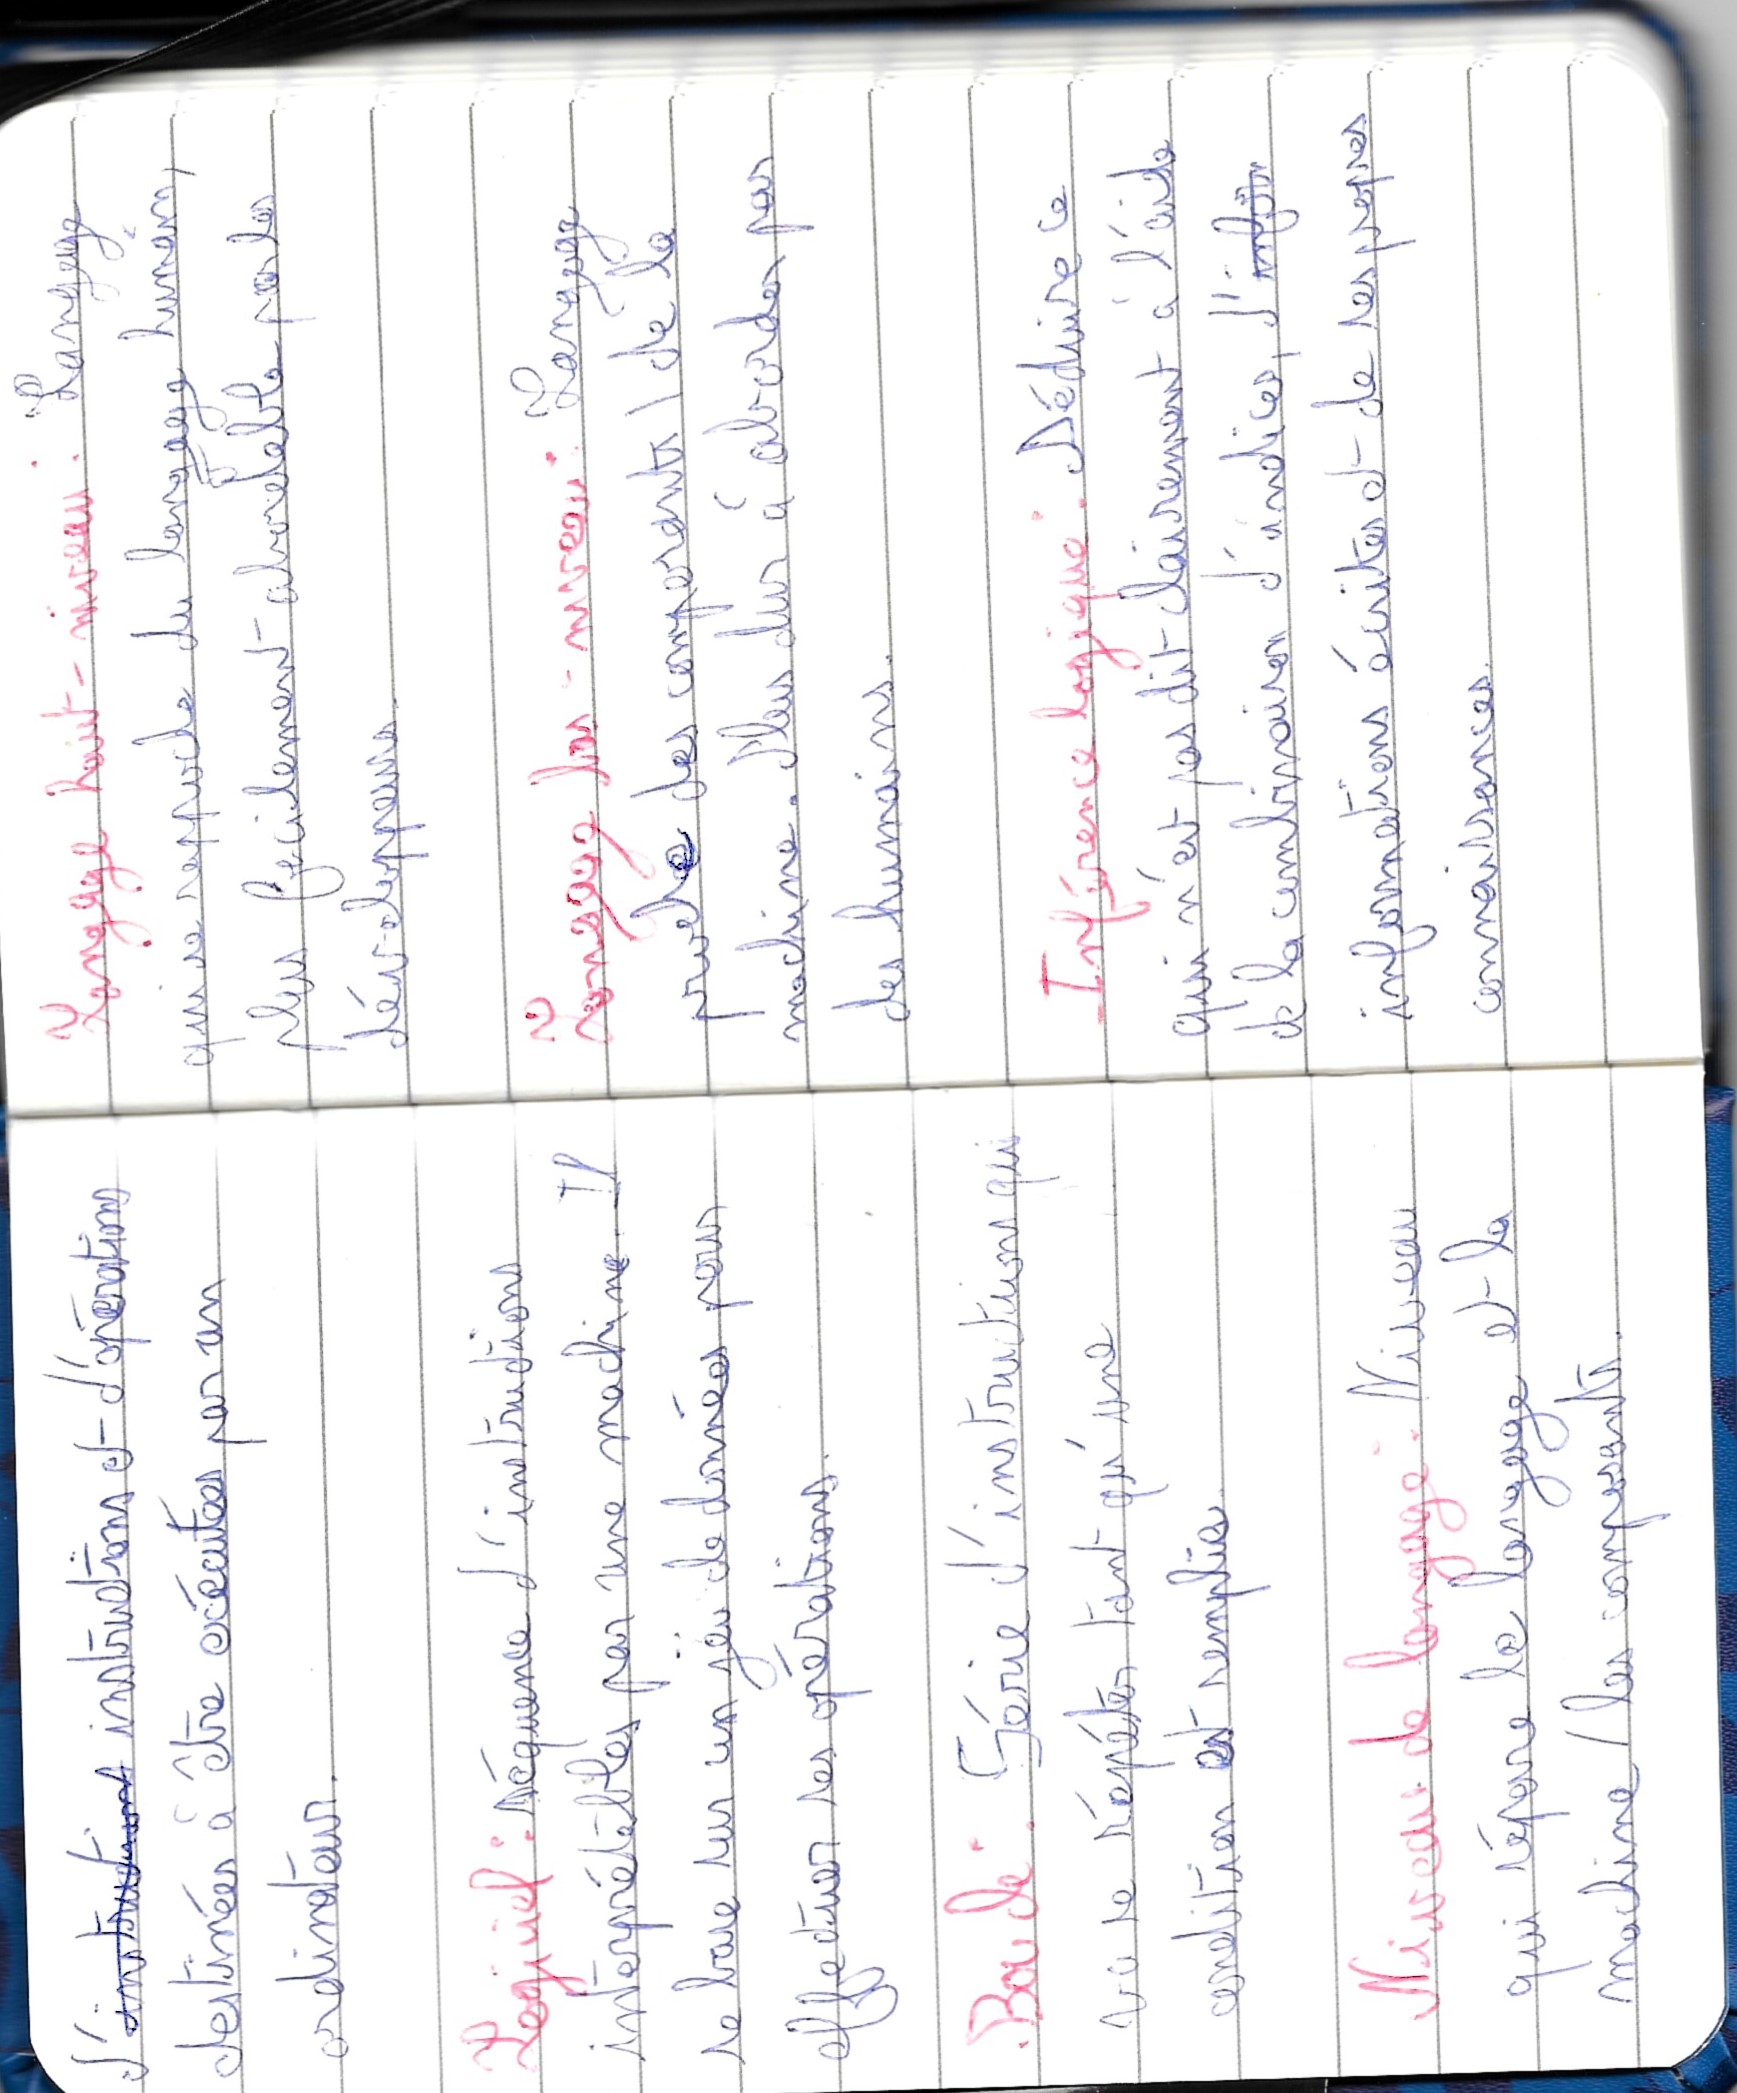 d'instructions instructions et d'opérations
destinées à être exécutées par un
ordinateur.
Logiciel : séquence d'instructions
interprétables par une machine. Il
se base sur un jeu de données pour
effectuer ses opérations.
Boucle : Série d'instructions qui
va se répéter tant qu'une
condition est remplie
Niveau de langage : Niveau
qui sépare le langage et la
machine / les composants.
Langage haut-niveau : Langage
qui se rapproche du langage humain,
plus facilement abordable par les
développeurs.
Langage bas-niveau : Langage
proche des composants / de la
machine. Plus dur à aborder par
des humains.
Inférence logique : Déduire ce
qui n'est pas dit clairement à l'aide
de la combinaison d'indices, d'infor
informations écrites et de ses propres
connaissances.